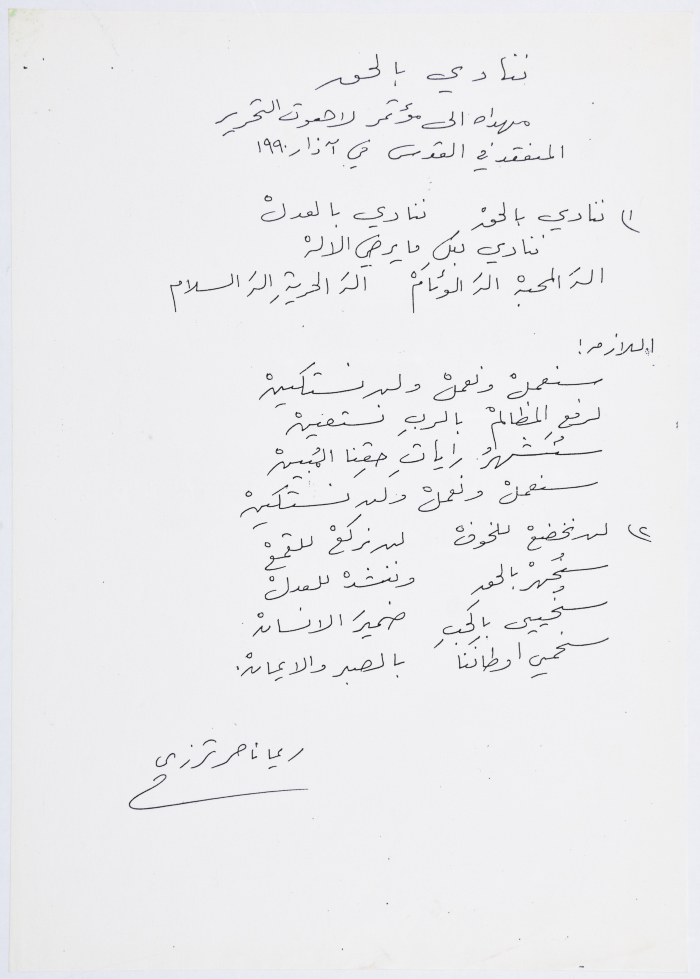 ننادي بالحق
مهداه الى مؤتمر لاهوت التحرير
المنعقد في القدس في آذار ١٩٩٠
١) ننادي بالحقْ ننادي بالعدلْ
ننادي بكلِ ما يرضي الالهْ
الىَ المحبةْ الىَ الوئامْ الىَ الحريةِ الىَ السلام
اللازمه:
سنعملْ ونعملْ ولن نستكينْ
لرفعِ المظالمْ بالربِ نستعينْ
سنُشهرُ راياتِ حقِنا المُبينْ
سنعملْ ونعملْ ولن نستكينْ
٢) لن نخضعْ للخوفْ لن نركعْ للقمعْ
سنُجهرْ بالحق وننشدْ للعدلْ
سنُحيي بالحُبِ ضميرَ الانسانْ
سنحمي اوطانَنا بالصبر والايمانْ.
ريما ناصر ترزي